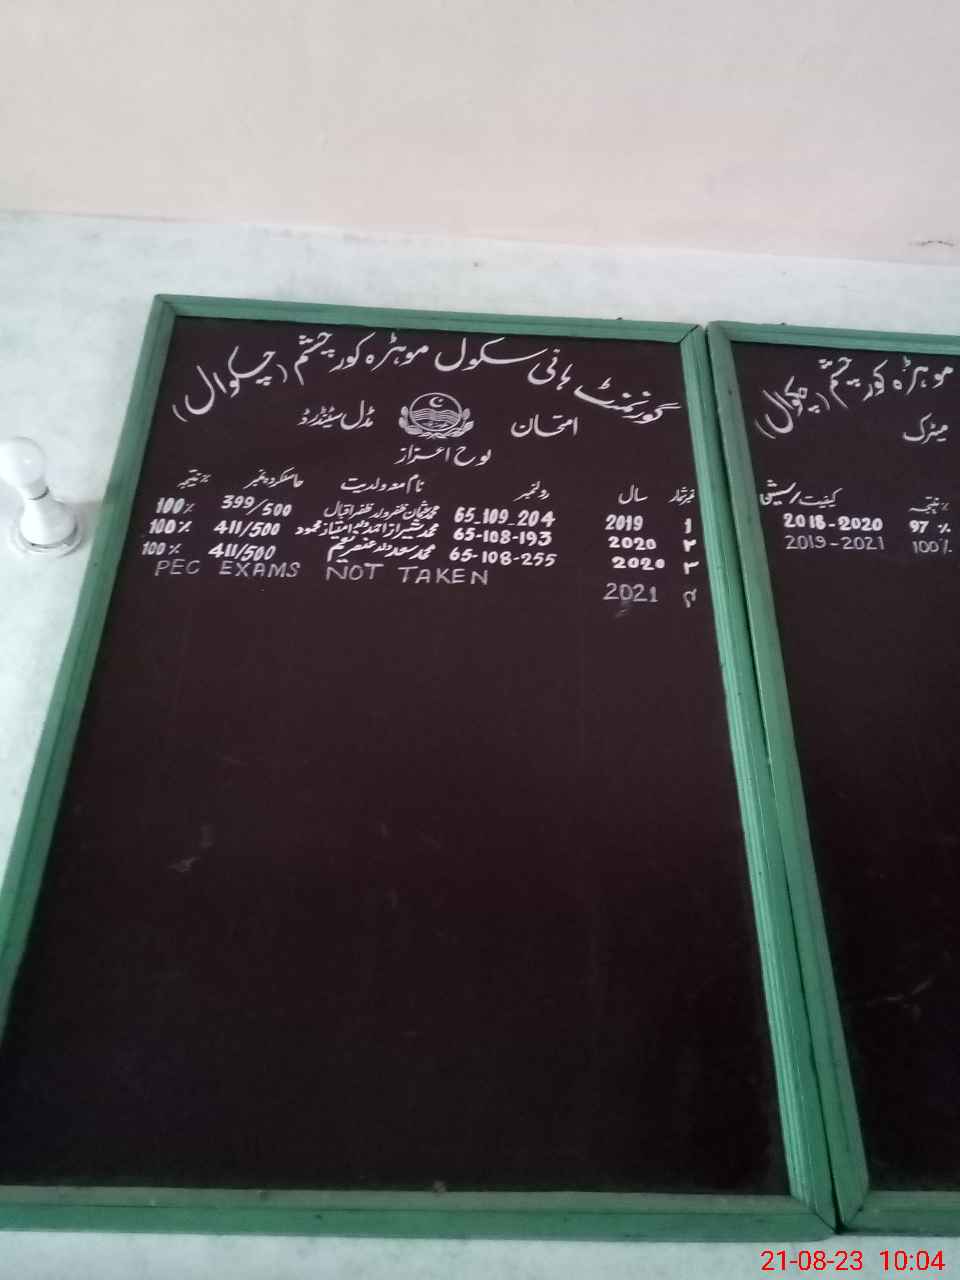 گورنمنٹ ہائی سکول موہڑہ کور چشم (چکوال)
امتحان مڈل سٹینڈرڈ
لوح اعزاز
نمبر شمار سال رولنمبر نام معہ ولدیت حاصل کردہ نمبر % نتیجہ
1 2019 65-109-204 محمد عثمان ظفر ولد ظفر اقبال 399/500 100%
۲ 2020 65-108-193 محمد شیراز احمد ولد امتیاز محمود 411/500 100%
۳ 2020 65-108-255 محمد سعد ولد عنصر نعیم 411/500 100%
۴ 2021 PEC EXAMS NOT TAKEN
موہڑہ کور چشم (چکوال)
میٹرک
% نتیجہ کیفیت/سیشن
97 % 2018-2020
100% 2019-2021
21-08-23 10:04